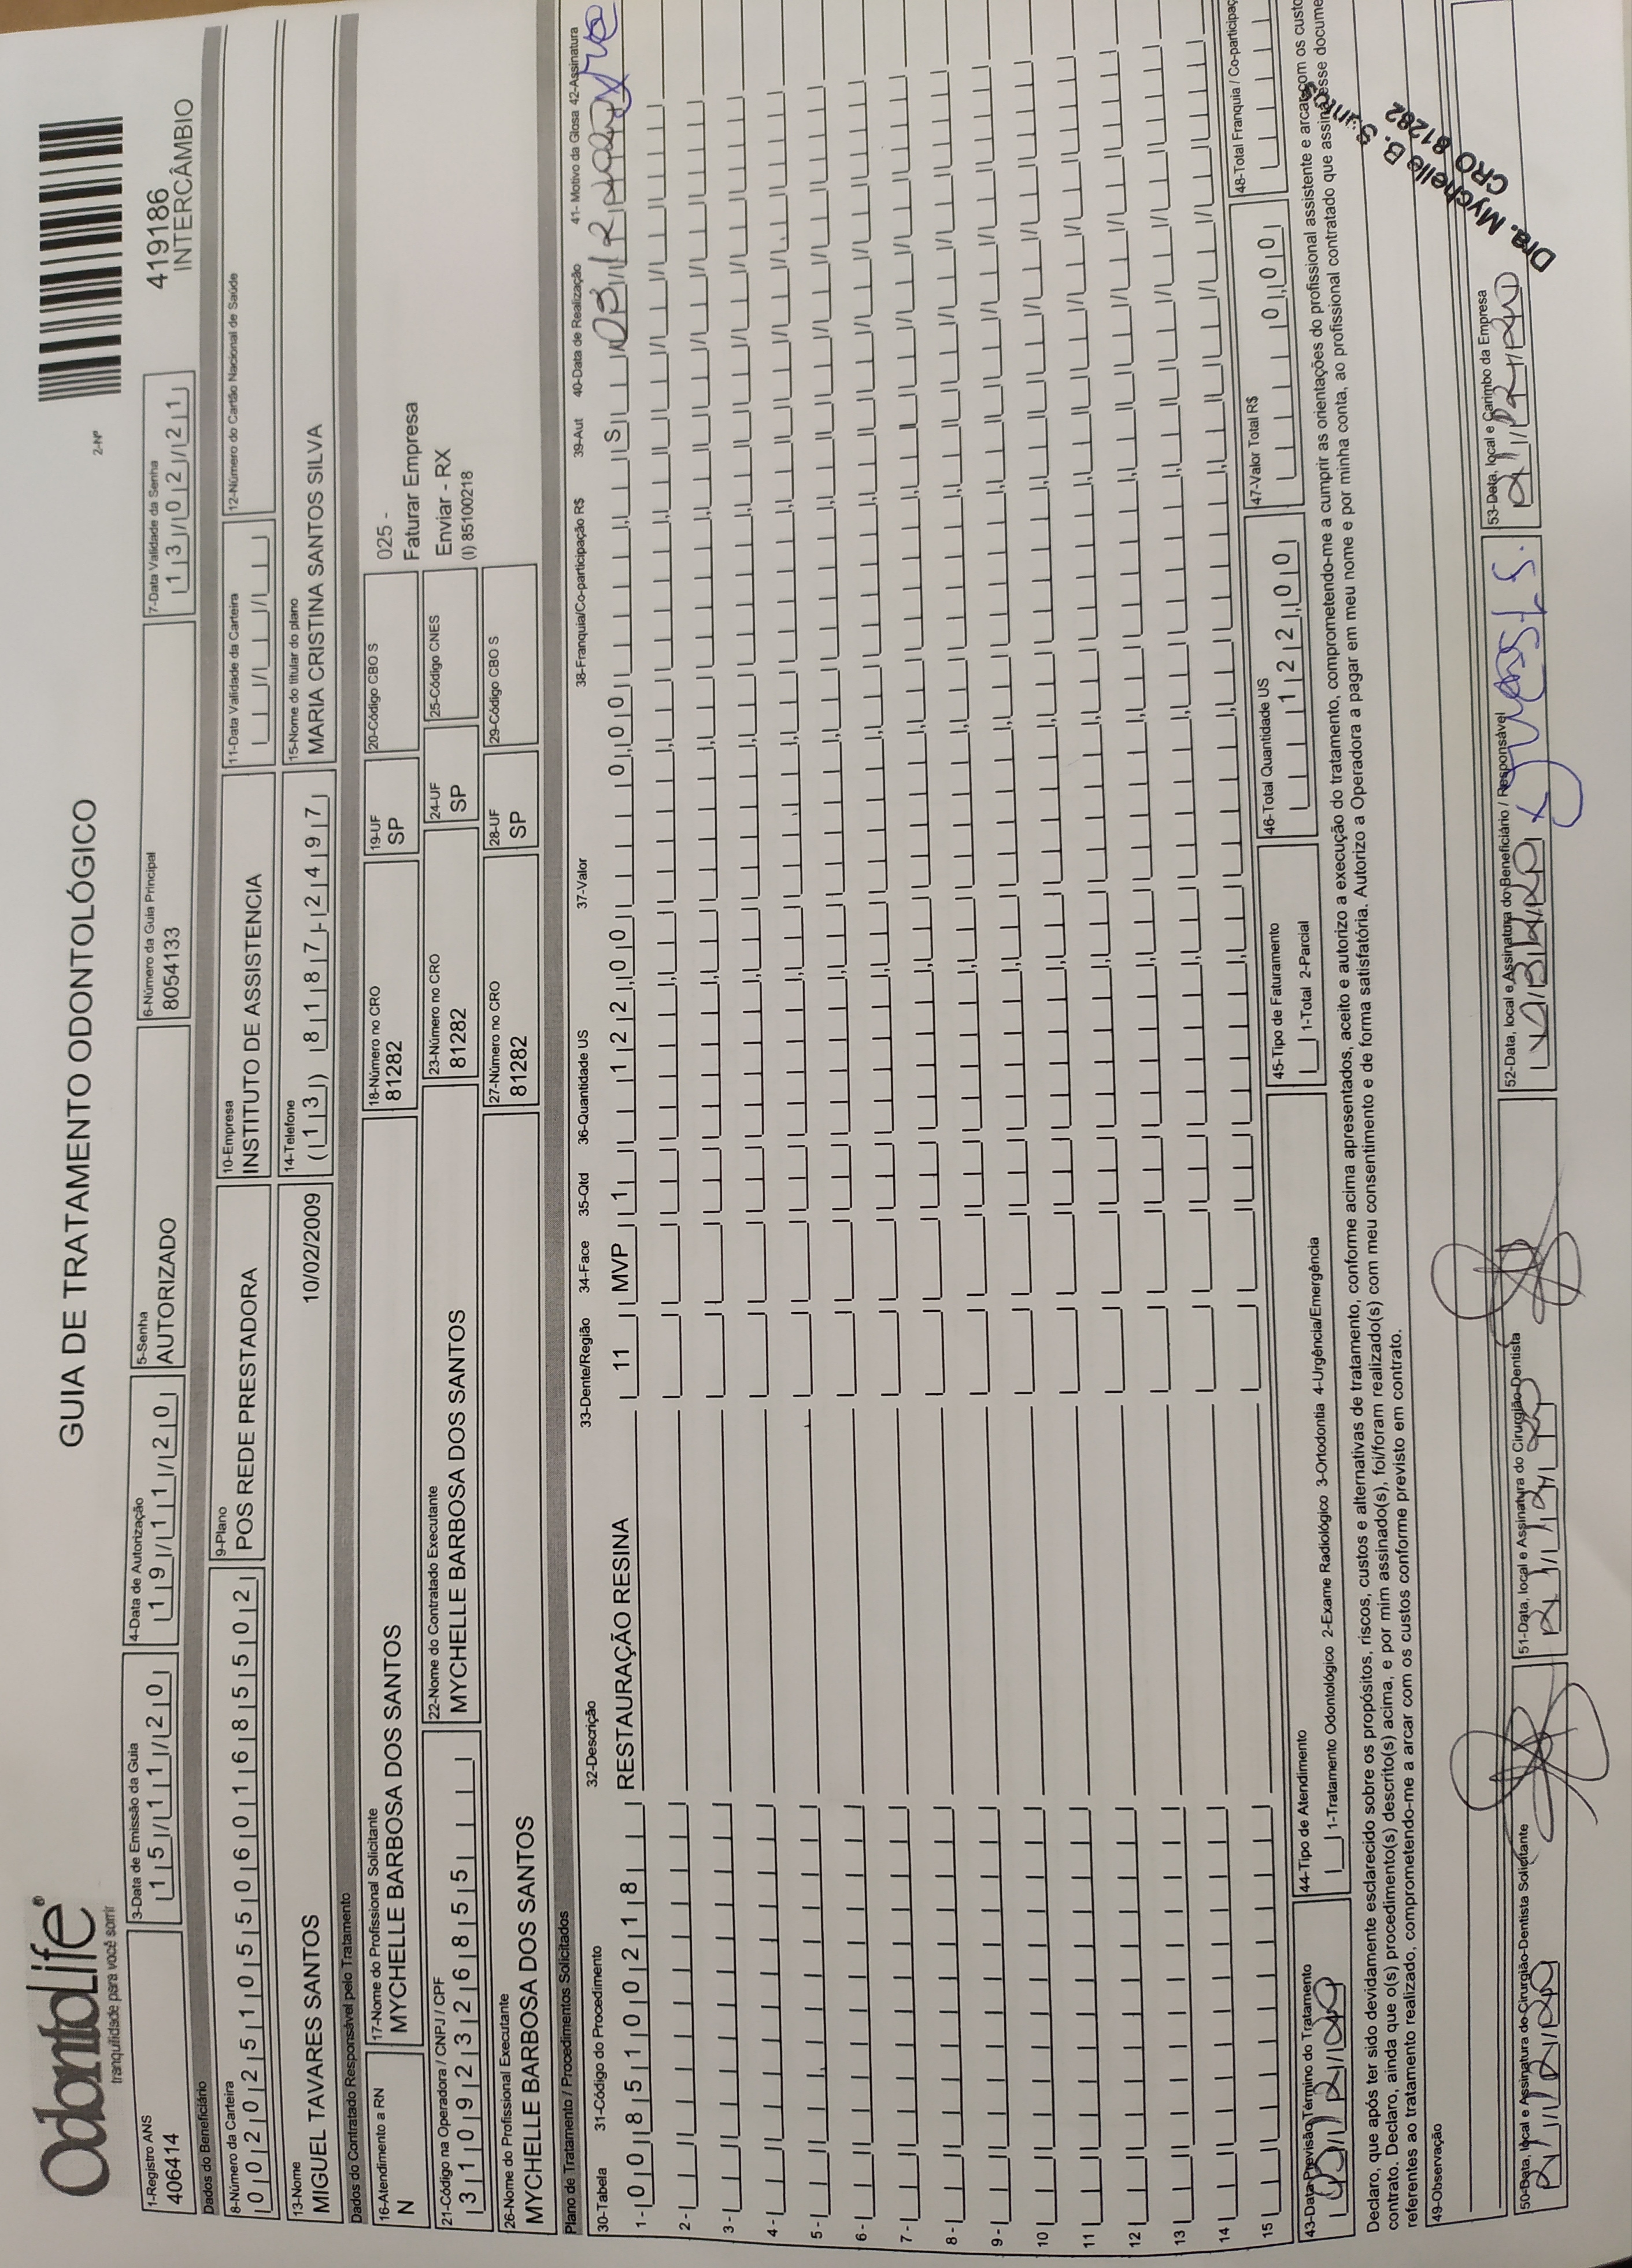 OdontoLife®
tranquilidade para você sorrir
GUIA DE TRATAMENTO ODONTOLÓGICO
2-Nº
419186
INTERCÂMBIO
1-Registro ANS
406414
3-Data de Emissão da Guia
15/11/20
4-Data de Autorização
19/11/20
5-Senha
AUTORIZADO
6-Número da Guia Principal
8054133
7-Data Validade da Senha
13/02/21
Dados do Beneficiário
8-Número da Carteira
00202510550601685502
9-Plano
POS REDE PRESTADORA
10-Empresa
INSTITUTO DE ASSISTENCIA
11-Data Validade da Carteira
12-Número do Cartão Nacional de Saúde
13-Nome
MIGUEL TAVARES SANTOS
10/02/2009
14-Telefone
(13) 8187-2497
15-Nome do titular do plano
MARIA CRISTINA SANTOS SILVA
Dados do Contratado Responsável pelo Tratamento
16-Atendimento a RN
N
17-Nome do Profissional Solicitante
MYCHELLE BARBOSA DOS SANTOS
18-Número no CRO
81282
19-UF
SP
20-Código CBO S
025 -
Faturar Empresa
Enviar - RX
(I) 85100218
21-Código na Operadora / CNPJ / CPF
31092326855
22-Nome do Contratado Executante
MYCHELLE BARBOSA DOS SANTOS
23-Número no CRO
81282
24-UF
SP
25-Código CNES
26-Nome do Profissional Executante
MYCHELLE BARBOSA DOS SANTOS
27-Número no CRO
81282
28-UF
SP
29-Código CBO S
Plano de Tratamento / Procedimentos Solicitados
30-Tabela 31-Código do Procedimento 32-Descrição 33-Dente/Região 34-Face 35-Qtd 36-Quantidade US 37-Valor 38-Franquia/Co-participação R$ 39-Aut 40-Data de Realização 41- Motivo da Glosa 42-Assinatura
1 - 00 85100218 RESTAURAÇÃO RESINA 11 MVP 1 122,00 0,00 S
2 -
3 -
4 -
5 -
6 -
7 -
8 -
9 -
10
11
12
13
14
15
43-Data Previsão Término do Tratamento
44-Tipo de Atendimento
1-Tratamento Odontológico 2-Exame Radiológico 3-Ortodontia 4-Urgência/Emergência
45-Tipo de Faturamento
1-Total 2-Parcial
46-Total Quantidade US
122,00
47-Valor Total R$
0,00
48-Total Franquia / Co-participaç
Declaro, que após ter sido devidamente esclarecido sobre os propósitos, riscos, custos e alternativas de tratamento, conforme acima apresentados, aceito e autorizo a execução do tratamento, comprometendo-me a cumprir as orientações do profissional assistente e arcar com os custo
contrato. Declaro, ainda que o(s) procedimento(s) descrito(s) acima, e por mim assinado(s), foi/foram realizado(s) com meu consentimento e de forma satisfatória. Autorizo a Operadora a pagar em meu nome e por minha conta, ao profissional contratado que assina esse docume
referentes ao tratamento realizado, comprometendo-me a arcar com os custos conforme previsto em contrato.
49-Observação
50-Data, local e Assinatura do Cirurgião-Dentista Solicitante
51-Data, local e Assinatura do Cirurgião-Dentista
52-Data, local e Assinatura do Beneficiário / Responsável
53-Data, local e Carimbo da Empresa
Dra. Mychelle B. Santos
CRO 81282